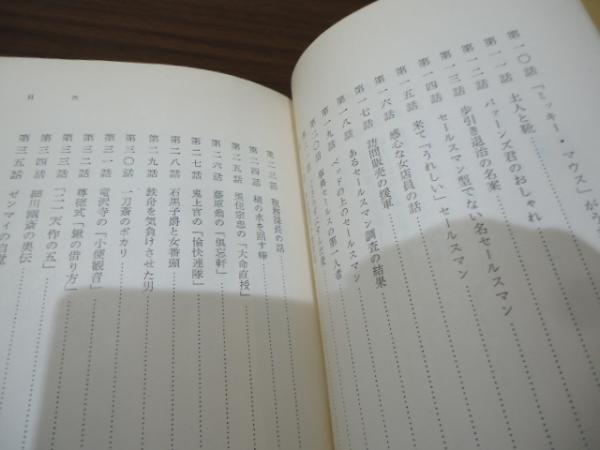 第一〇話 「ミッキー・マウス」がう
第一一話 土人と靴
第一二話 バァーンズ君のおしゃれ
第一三話 歩引き退治の名案
第一四話 セールスマン型でない名セールスマン
第一五話 来て「うれしい」セールスマン
第一六話 感心な女店員の話
第一七話 訪問販売の援軍
第一八話 あるセールスマン調査の結果
ベッドの上のセールスマン
第二〇話
目次
第二三話
第二四話
第二五話 荒住宗忠の「大命直授」
第二六話 藤原惣の「倶忘軒」
第二七話 鬼上官の「愉快連隊」
第二八話 石黒子爵と女番頭
第二九話 鉄舟を気負けさせた男
第三〇話 一刀斎のポカリ
第三一話 竜沢寺の「小便観音」
第三二話 尊徳式「鍬の借り方」
第三三話 「二一天作の五」
第三四話 細川幽斎の奥伝
第三五話 ゼンマイの自覚